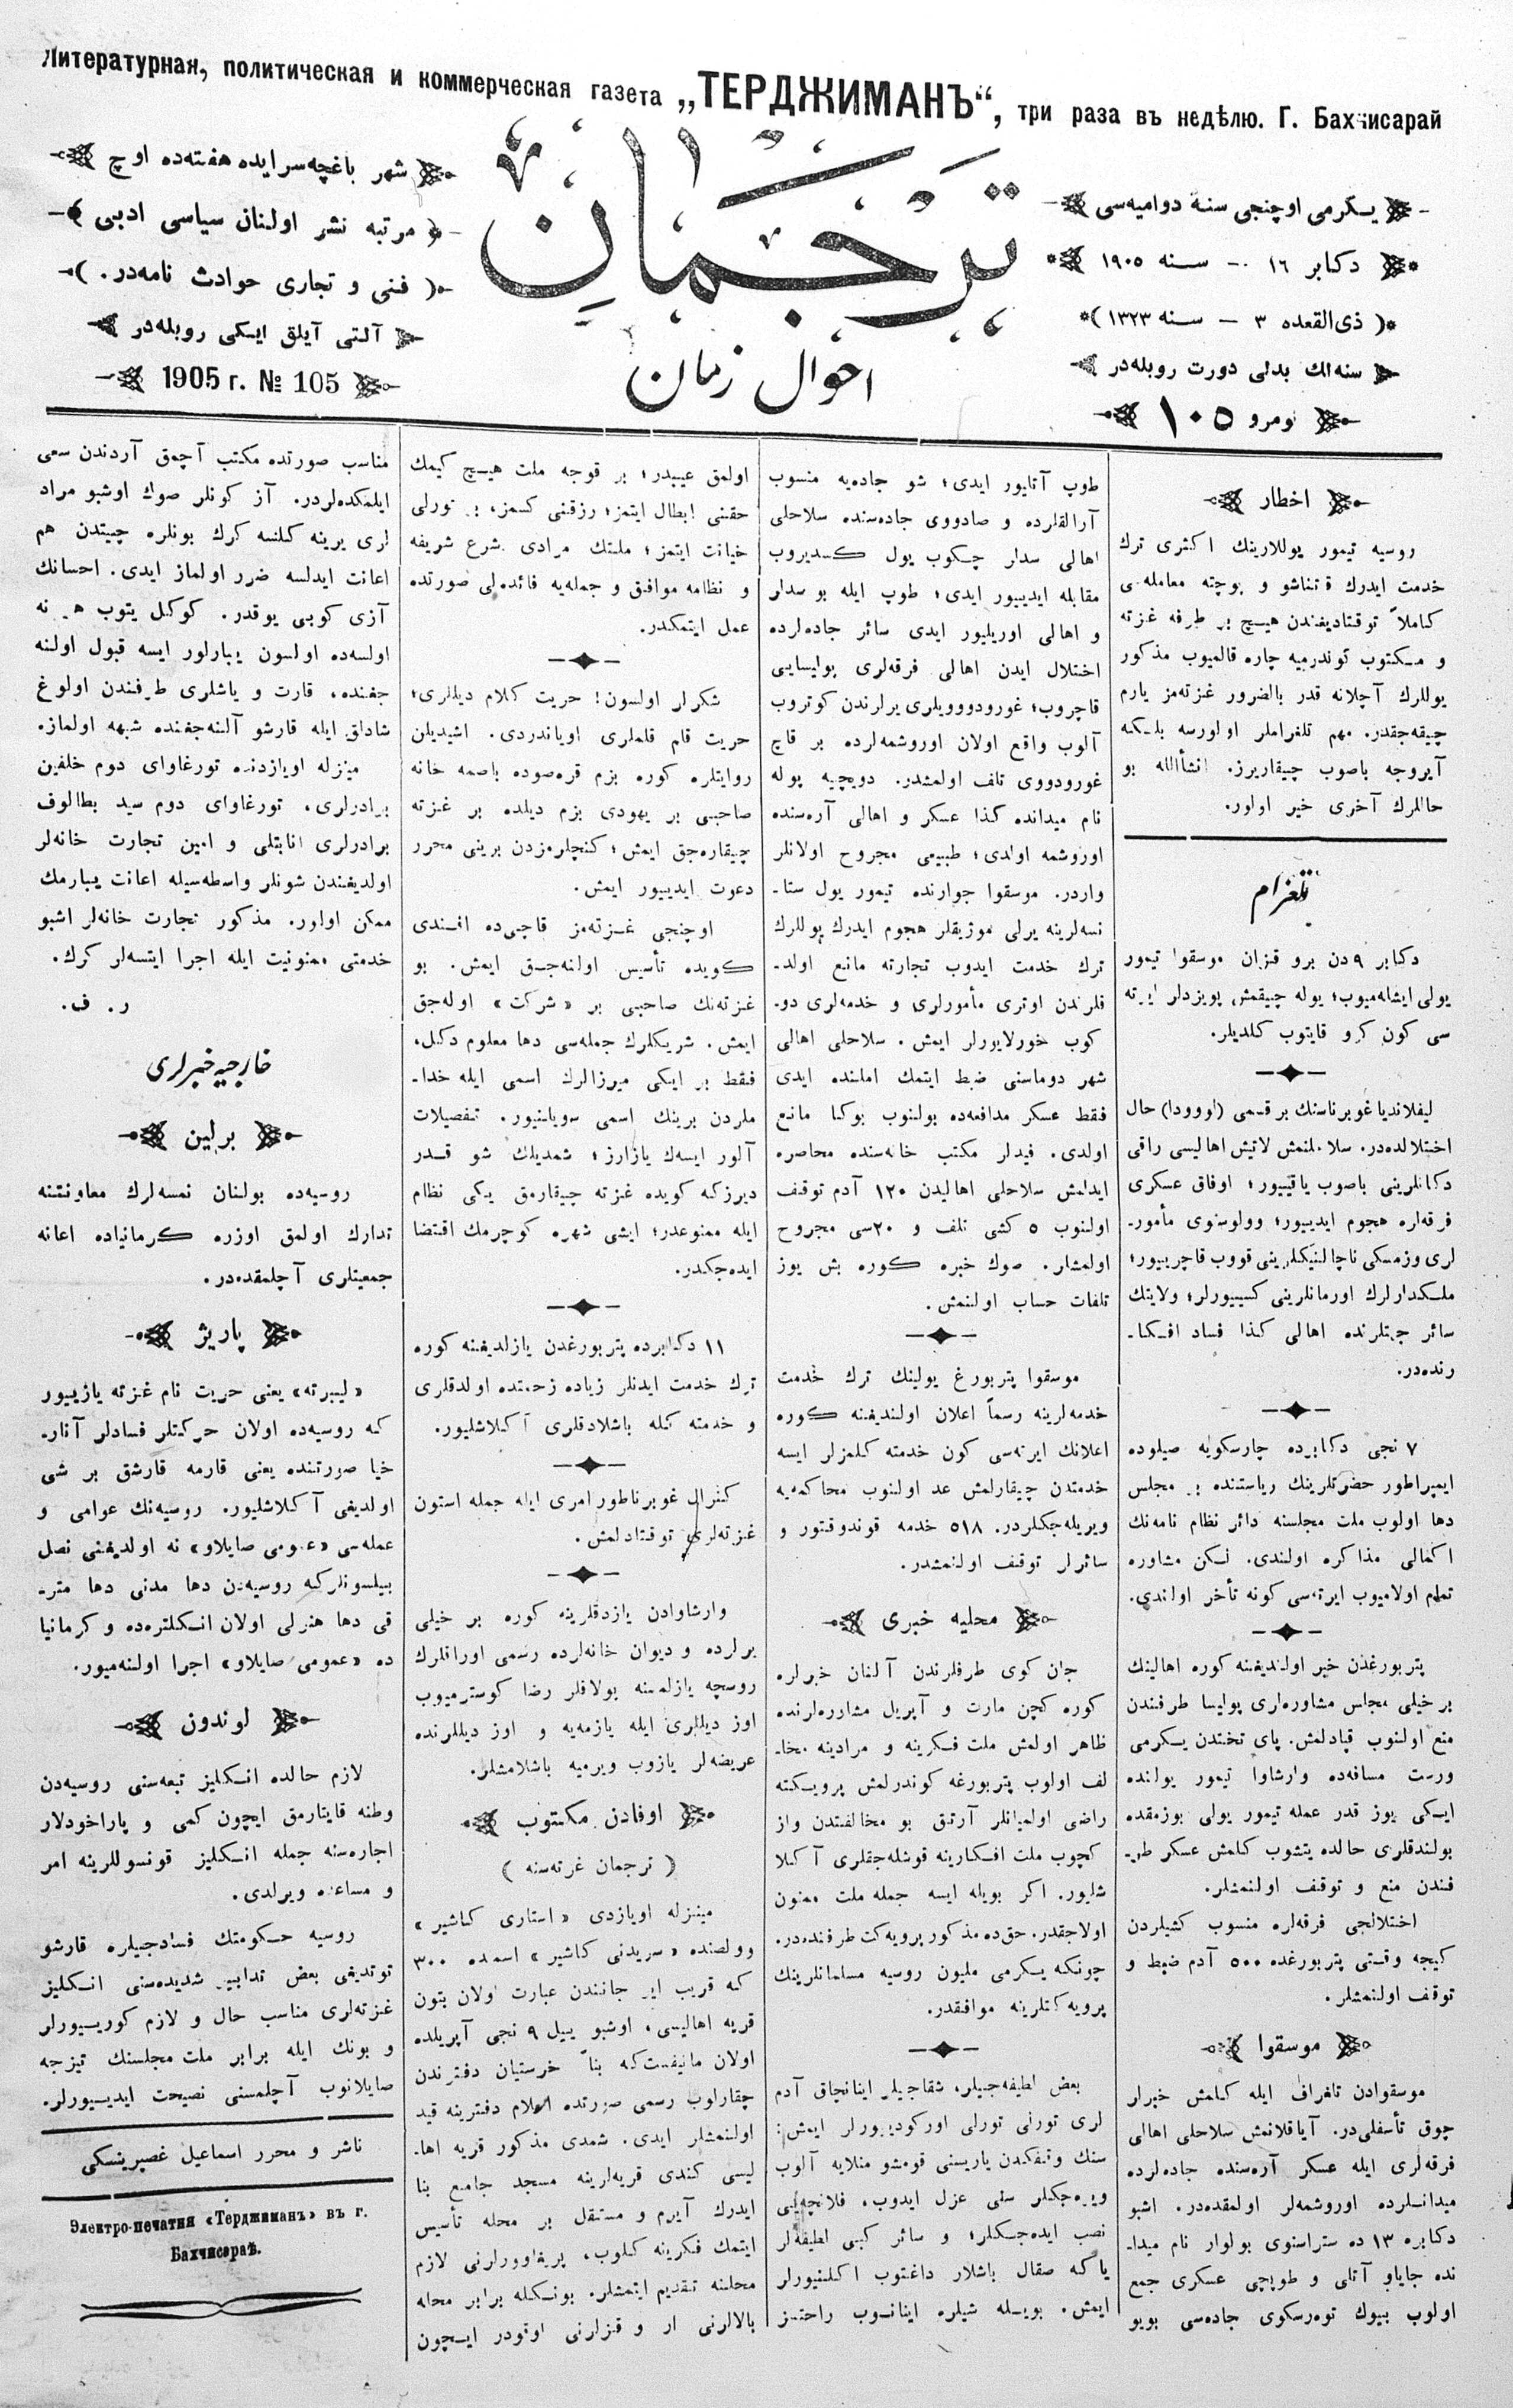 Литературная, политическая и коммерческая газета „ТЕРДЖИМАНЪ“, три раза въ недѣлю. Г. Бахчисарай
ترجمان
احوال زمان
يكرمى اوچنجى سنهٔ دواميه‌سى
دكابر ١٦ — سنه ١٩٠٥
(ذى‌القعده ٣ — سنه ١٣٢٣)
سنه‌لك بدلى دورت روبله‌در
نومرو ١٠٥
شهر باغچه‌سرايده هفته‌ده اوچ
مرتبه نشر اولنان سياسى ادبى
(فنى و تجارى حوادث نامه‌در.)
آلتى آيلق ايكى روبله‌در
1905 г. № 105
اخطار
روسيه تيمور يوللارينك اكثرى ترك
خدمت ايدرك قتناشو و پوچته معامله‌سى
كاملاً توقتاديغندن هيچ بر طرفه غزته
و مكتوب كوندرميه چاره قالميوب مذكور
يوللرك آچلانه قدر بالضرور غزته‌مز يارم
چيقه‌جقدر. مهم تلغراملر اولورسه بلكه
آيروجه باصوب چيقاريرز. انشأالله بو
حاللرك آخرى خير اولور.
تلغرام
دكابر ٩ دن برو قزان موسقوا تيمور
يولى ايشله‌ميوب؛ يوله چيقمش پويزدلر ايرته
سى كون كرو قايتوب كلديلر.
ليفلانديا غوبرناسنك بر قسمى (اوودا) حال
اختلالده‌در. سلاحلنمش لاتيش اهاليسى راقى
دكانلرينى باصوب ياقييور؛ اوفاق عسكرى
فرقه‌لره هجوم ايدييور؛ وولوسنوى مأمور-
لرى وزمسكى ناچالنيكلرينى قووب قاچرييور؛
ملكدارلرك اورمانلرينى كسييورلر؛ ولايتك
سائر جهتلرنده اهالى كذا فساد افكا-
رنده‌در.
٧ نجى دكابرده چارسكويه صيلوده
ايمپراطور حضرتلرينك رياستنده بر مجلس
دها اولوب ملت مجلسنه دائر نظام نامه‌نك
اكمالى مذاكره اولندى. لكن مشاوره
تمام اولاميوب ايرته‌سى كونه تأخر اولندى.
پتربورغدن خبر اولنديغنه كوره اهالينك
بر خيلى مجلس مشاوره‌لرى پوليسا طرفندن
منع اولنوب قپادلمش. پاى تختدن يكرمى
ورست مسافه‌ده وارشاوا تيمور يولنده
ايكى يوز قدر عمله تيمور يولى بوزمقده
بولندقلرى حالده يتشوب كلمش عسكر طر-
فندن منع و توقف اولنمشلر.
اختلالجى فرقه‌لره منسوب كشيلردن
كيجه وقتى پتربورغده ٥٠٠ آدم ضبط و
توقف اولنمشلر.
موسقوا
موسقوادن تلغراف ايله كلمش خبرلر
چوق تأسفلى‌در. آياقلانمش سلاحلى اهالى
فرقه‌لرى ايله عسكر آره‌سنده جاده‌لرده
ميدانلرده اوروشمه‌لر اولمقده‌در. اشبو
دكابره ١٣ ده ستراسنوى بولوار نام ميدا-
نده جاياو آتلى و طوپچى عسكرى جمع
اولوب بيوك توه‌رسكوى جاده‌سى بويو
طوپ آتايور ايدى؛ شو جاده‌يه منسوب
آرالقلرده و صادووى جاده‌سنده سلاحلى
اهالى سدلر چكوب يول كسديروب
مقابله ايدييور ايدى؛ طوپ ايله بو سدلر
و اهالى اوريليور ايدى سائر جاده‌لرده
اختلال ايدن اهالى فرقه‌لرى پوليسايى
قاچروب؛ غورودوويلرى يرلرندن كوتروب
آلوب واقع اولان اوروشمه‌لرده بر قاچ
غورودووى تلف اولمشدر. دويچيه پوله
نام ميدانده كذا عسكر و اهالى آره‌سنده
اوروشمه اولدى؛ طبيعى مجروح اولانلر
واردر. موسقوا جوارنده تيمور يول ستا-
نسه‌لرينه يرلى موژيقلر هجوم ايدرك يوللرك
ترك خدمت ايدوب تجارته مانع اولد-
قلرندن اوترى مأمورلرى و خدمه‌لرى دو-
كوب خورلايورلر ايمش. سلاحلى اهالى
شهر دوماسنى ضبط ايتمك املنده ايدى
فقط عسكر مدافعه‌ده بولنوب بوكا مانع
اولدى. فيدلر مكتب خانه‌سنده محاصره
ايدلمش سلاحلى اهاليدن ١٢٠ آدم توقف
اولنوب ٥ كشى تلف و ٢٠سى مجروح
اولمشلر. صوك خبره كوره بش يوز
تلفات حساب اولنمش.
موسقوا پتربورغ يولينك ترك خدمت
خدمه‌لرينه رسماً اعلان اولنديغنه كوره
اعلانك ايرته‌سى كون خدمته كلمزلر ايسه
خدمتدن چيقارلمش عد اولنوب محاكمه‌يه
ويريله‌جكلردر. ٥١٨ خدمه قوندوقتور و
سائرلر توقف اولنمشدر.
محليه خبرى
جان كوى طرفلرندن آلنان خبرلره
كوره كچن مارت و آپريل مشاوره‌لرنده
ظاهر اولمش ملت فكرينه و مرادينه مخا-
لف اولوب پتربورغه كوندرلمش پرويكته
راضى اولميانلر آرتق بو مخالفتدن واز
كچوب ملت افكارينه قوشله‌جقلرى آكلا
شليور. اكر بويله ايسه جمله ملت ممنون
اولاجقدر. حق‌ده مذكور پرويه‌كت طرفنده‌در.
چونكه يكرمى مليون روسيه مسلمانلرينك
پرويه‌كتلرينه موافقدر.
بعض لطيفه‌جيلر، شقاجيلر اينانچاق آدم
لرى تورلى تورلى اوركودييورلر ايمش:
سنك وقفكدن ياريسنى قومشو منلايه آلوب
ويره‌جكلر سنى عزل ايدوب، فلانچه‌يى
نصب ايده‌جكلر؛ و سائر كبى لطيفه‌لر
ياكه صقال باشلار داغتوب اكلنيورلر
ايمش. بويله شيلره اينانوب راحتسز
اولمق عيبدر؛ بر قوجه ملت هيچ كيمك
حقنى ابطال ايتمز؛ رزقنى كسمز، بر تورلى
خيانت ايتمز؛ ملتك مرادى شرع شريفه
و نظامه موافق و جمله‌يه فائده‌لى صورتده
عمل ايتمكدر.
شكرلر اولسون! حريت كلام ديللرى؛
حريت قلم قلملرى اوياندردى. اشيديلن
روايتلره كوره بزم قره‌صوده باصمه خانه
صاحبى بر يهودى بزم ديلده بر غزته
چيقاره‌جق ايمش؛ كنچلرمزدن برينى محرر
دعوت ايدييور ايمش.
اوچنجى غزته‌مز قاچى‌ده افندى
كويده تأسيس اولنه‌جق ايمش. بو
غزته‌نك صاحبى بر «شركت» اوله‌جق
ايمش. شريكلرك جمله‌سى دها معلوم دكل،
فقط بر ايكى ميرزالرك اسمى ايله خدا-
ملردن برينك اسمى سويلنيور. تفصيلات
آلور ايسه‌ك يازارز؛ شمديلك شو قدر
ديرزكه كويده غزته چيقارمق يكى نظام
ايله ممنوعدر؛ ايشى شهره كوچرمك اقتضا
ايده‌جكدر.
١١ دكابرده پتربورغدن يازلديغنه كوره
ترك خدمت ايدنلر زياده زحمتده اولدقلرى
و خدمته كله باشلادقلرى آكلاشليور.
كنرال غوبرناطور امرى ايله جمله استون
غزته‌لرى توقتادلمش.
وارشاوادن يازدقلرينه كوره بر خيلى
يرلرده و ديوان خانه‌لرده رسمى اوراقلرك
روسچه يازلمسنه بولاقلر رضا كوسترميوب
اوز ديللرى ايله يازمه‌يه و اوز ديللرنده
عريضه‌لر يازوب ويرميه باشلامشلر.
اوفادن مكتوب
(ترجمان غزته‌سنه)
مينزله اويازدى «استارى كاشير»
وولصنده «سريدنى كاشير» اسمده ٣٠٠
كه قريب اير جانندن عبارت اولان بتون
قريه اهاليسى، اوشبو ييل ٩ نجى آپريلده
اولان مانيفست‌كه بناً خرستيان دفترندن
چقارلوب رسمى صورتده اسلام دفترينه قيد
اولنمشلر ايدى. شمدى مذكور قريه اها-
ليسى كندى قريه‌لرينه مسجد جامع بنا
ايدرك آيرم و مستقل بر محله تأسيس
ايتمك فكرينه كلوب، پريغاوورلرنى لازم
محلينه تقديم ايتمشلر. بونكله برابر محله
بالالرنى ار و قزلرنى اوقودر ايچون
مناسب صورتده مكتب آچمق آردندن سعى
ايلمكده‌لردر. آز كونلر صوك اوشبو مراد
لرى يرينه كلسه كرك بونلره چيتدن هم
اعانت ايدلسه ضرر اولماز ايدى. احسانك
آزى كوبى يوقدر. كوكل يتوب هر نه
اولسه‌ده اولسون يبارلور ايسه قبول اولنه
جغنده، قارت و ياشلرى طرفندن اولوغ
شادلق ايله قارشو آلنه‌جغنده شبهه اولماز.
مينزله اويازدنده تورغاواى دوم خلفين
برادرلرى، تورغاواى دوم سيد بطالوف
برادرلرى انابتلى و امين تجارت خانه‌لر
اولديغندن شونلر واسطه‌سيله اعانت يبارمك
ممكن اولور. مذكور تجارت خانه‌لر اشبو
خدمتى ممنونيت ايله اجرا ايتسه‌لر كرك.
ر. ف.
خارجيه خبرلرى
برلين
روسيه‌ده بولنان نمسه‌لرك معاونتنه
تدارك اولمق اوزره كرمانياده اعانه
جمعيتلرى آچلمقده‌در.
پاريژ
«ليبرته» يعنى حريت نام غزته يازييور
كه روسيه‌ده اولان حركتلر فسادلر آنار-
خيا صورتنده يعنى قارمه قارشق بر شى
اولديغى آكلاشليور. روسيه‌نك عوامى و
عمله‌سى «عمومى صايلاو» نه اولديغنى نصل
بيلسونلركه روسيه‌دن دها مدنى دها متر-
قى دها هنرلى اولان انكلتره‌ده و كرمانيا
ده «عمومى صايلاو» اجرا اولنه‌ميور.
لوندون
لازم حالده انكليز تبعه‌سنى روسيه‌دن
وطنه قايتارمق ايچون كمى و پاراخودلار
اجاره‌سنه جمله انكليز قونسوللرينه امر
و مساعده ويرلدى.
روسيه حكومتك فسادجيلره قارشو
توتديغى بعض تدابير شديده‌سنى انكليز
غزته‌لرى مناسب حال و لازم كورييورلر
و بونك ايله برابر ملت مجلسنك تيزجه
صايلانوب آچلمسنى نصيحت ايدييورلر.
ناشر و محرر اسماعيل غصپرينسكى
Электро-печатня «Терджиманъ» въ г.
Бахчисараѣ.